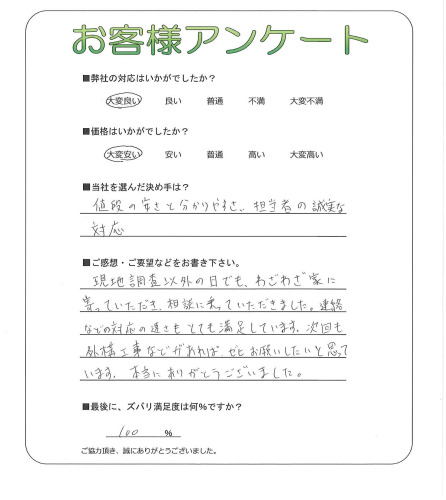 お客様アンケート
■弊社の対応はいかがでしたか？
大変良い 良い 普通 不満 大変不満
■価格はいかがでしたか？
大変安い 安い 普通 高い 大変高い
■当社を選んだ決め手は？
値段の安さと分かりやすさ、担当者の誠実な
対応
■ご感想・ご要望などをお書き下さい。
現地調査以外の日でも、わざわざ家に
寄っていただき、相談に乗っていただきました。連絡
などの対応の速さもとても満足しています。次回も
外構工事などがあれば、ぜひお願いしたいと思って
います。本当にありがとうございました。
■最後に、ズバリ満足度は何%ですか？
100 %
ご協力頂き、誠にありがとうございました。